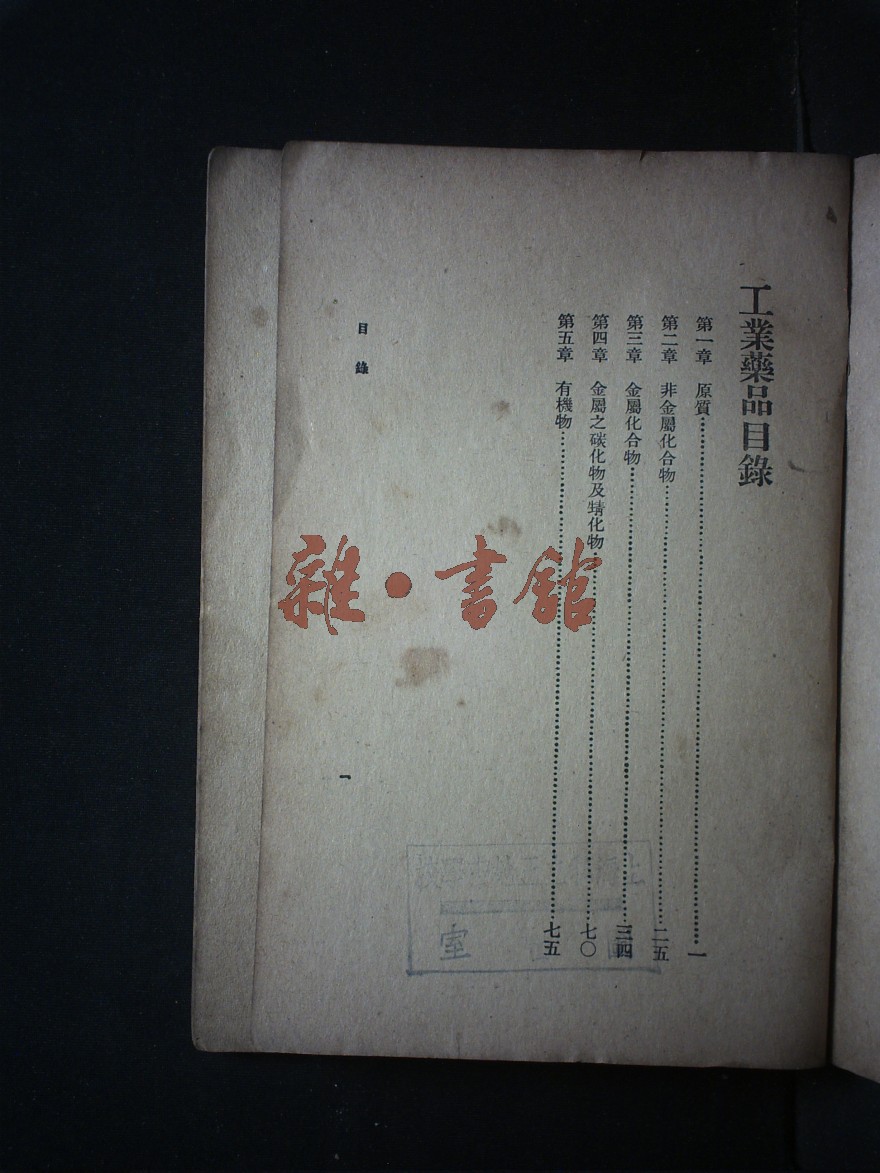 工業藥品目錄
第一章 原質……一
第二章 非金屬化合物……二五
第三章 金屬化合物……三四
第四章 金屬之碳化物及䝼化物……七〇
第五章 有機物……七五
目錄
一
雜·書館
室